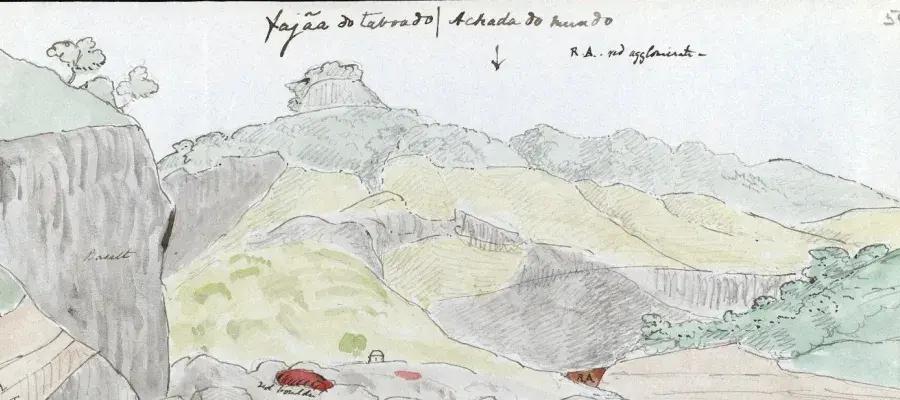 Fajãa do taboado | Achada do mundo
R. A. - red agglomerate -
Basalt
red boulder
R.A.